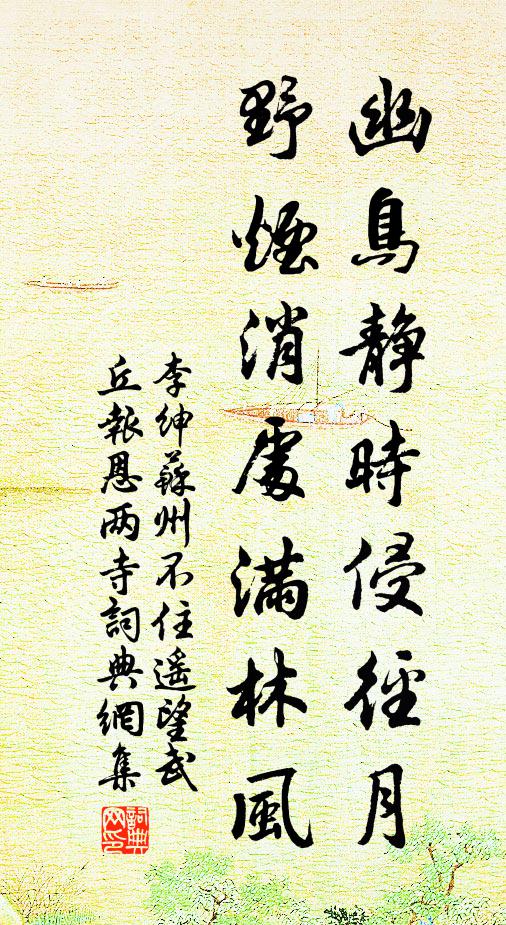 幽鳥静時侵徑月
野煙消處滿林風
李紳蘇州不住遥望武
丘報恩两寺詞典網集
詞典网印